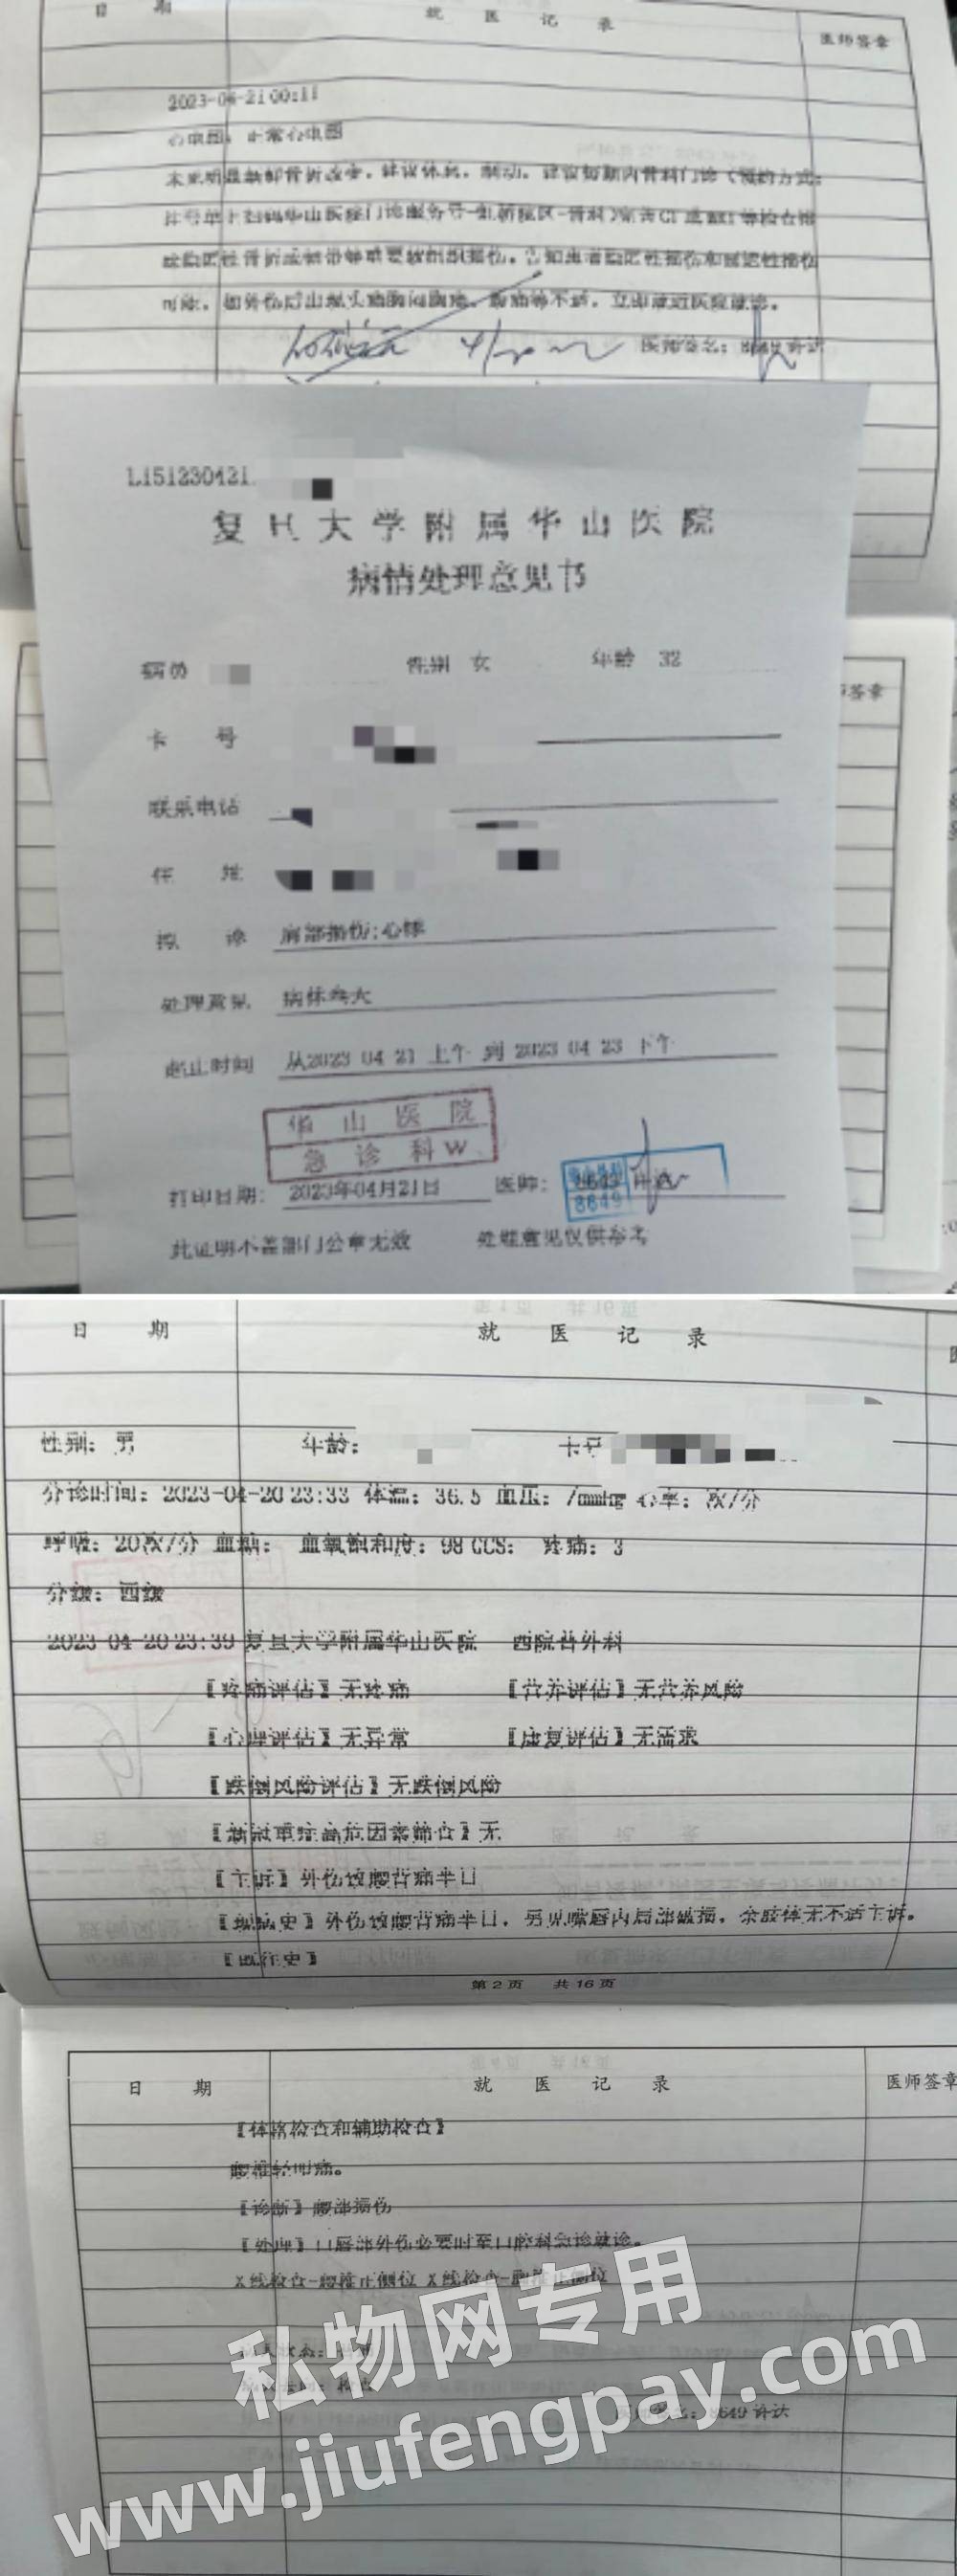 日 期 就 医 记 录 医师签章
2023-04-21 00:11
心电图：正常心电图
未见明显骨折改变，建议休息，制动，建议短期内骨科门诊（预约方式：
可能，如外伤后出现头痛胸闷腹痛、等不适，立即就近医院就诊。
医师签名：8649 许达
L151230421
复 旦 大 学 附 属 华 山 医 院
病情处理意见书
签章
病员 性别 女 年龄 32
卡 号
联系电话
住 址
拟 诊 肩部损伤；心悸
处理意见 病休叁天
起止时间 从2023 04 21 上午 到 2023 04 23 下午
华 山 医 院
急 诊 科 W
打印日期： 2023年04月21日 医师： 8649
此证明不盖部门公章无效 处理意见仅供参考
日 期 就 医 记 录 医
性别：男 年龄： 卡号
分诊时间：2023-04-20 23:33 体温：36.5 血压： /mmHg 心率： 次/分
呼吸：20次/分 血糖： 血氧饱和度：98 GCS： 疼痛：3
分级：四级
2023-04-20 23:39 复旦大学附属华山医院 西院普外科
【疼痛评估】无疼痛 【营养评估】无营养风险
【心理评估】无异常 【康复评估】无需求
【跌倒风险评估】无跌倒风险
【新冠重症高危因素筛查】无
【主诉】外伤致腰背痛半日
【现病史】外伤致腰背痛半日，另见嘴唇内局部破损，余肢体无不适主诉。
【既往史】
第 2 页 共 16 页
日 期 就 医 记 录 医师签章
【体格检查和辅助检查】
腰椎轻叩痛。
【诊断】腰部损伤
【处理】口唇部外伤必要时至口腔科急诊就诊。
X线检查-腰椎正侧位 X线检查-胸椎正侧位
医师签名：8649 许达
私物网专用
www.jiufengpay.com